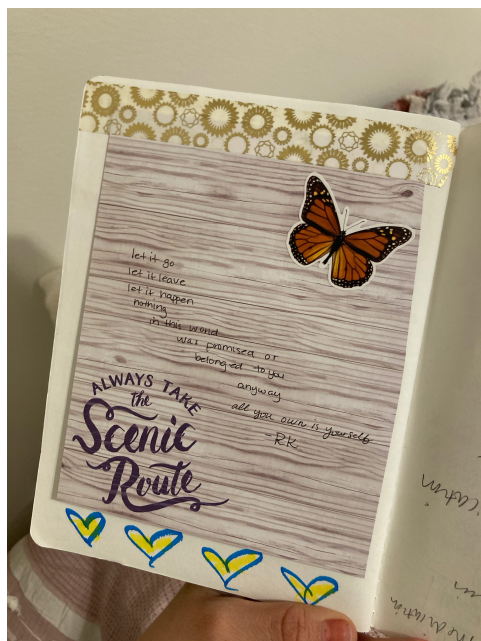 let it go
let it leave
let it happen
nothing
in this world
was promised or
belonged to you
anyway
all you own is yourself
-RK
ALWAYS TAKE
the
Scenic
Route